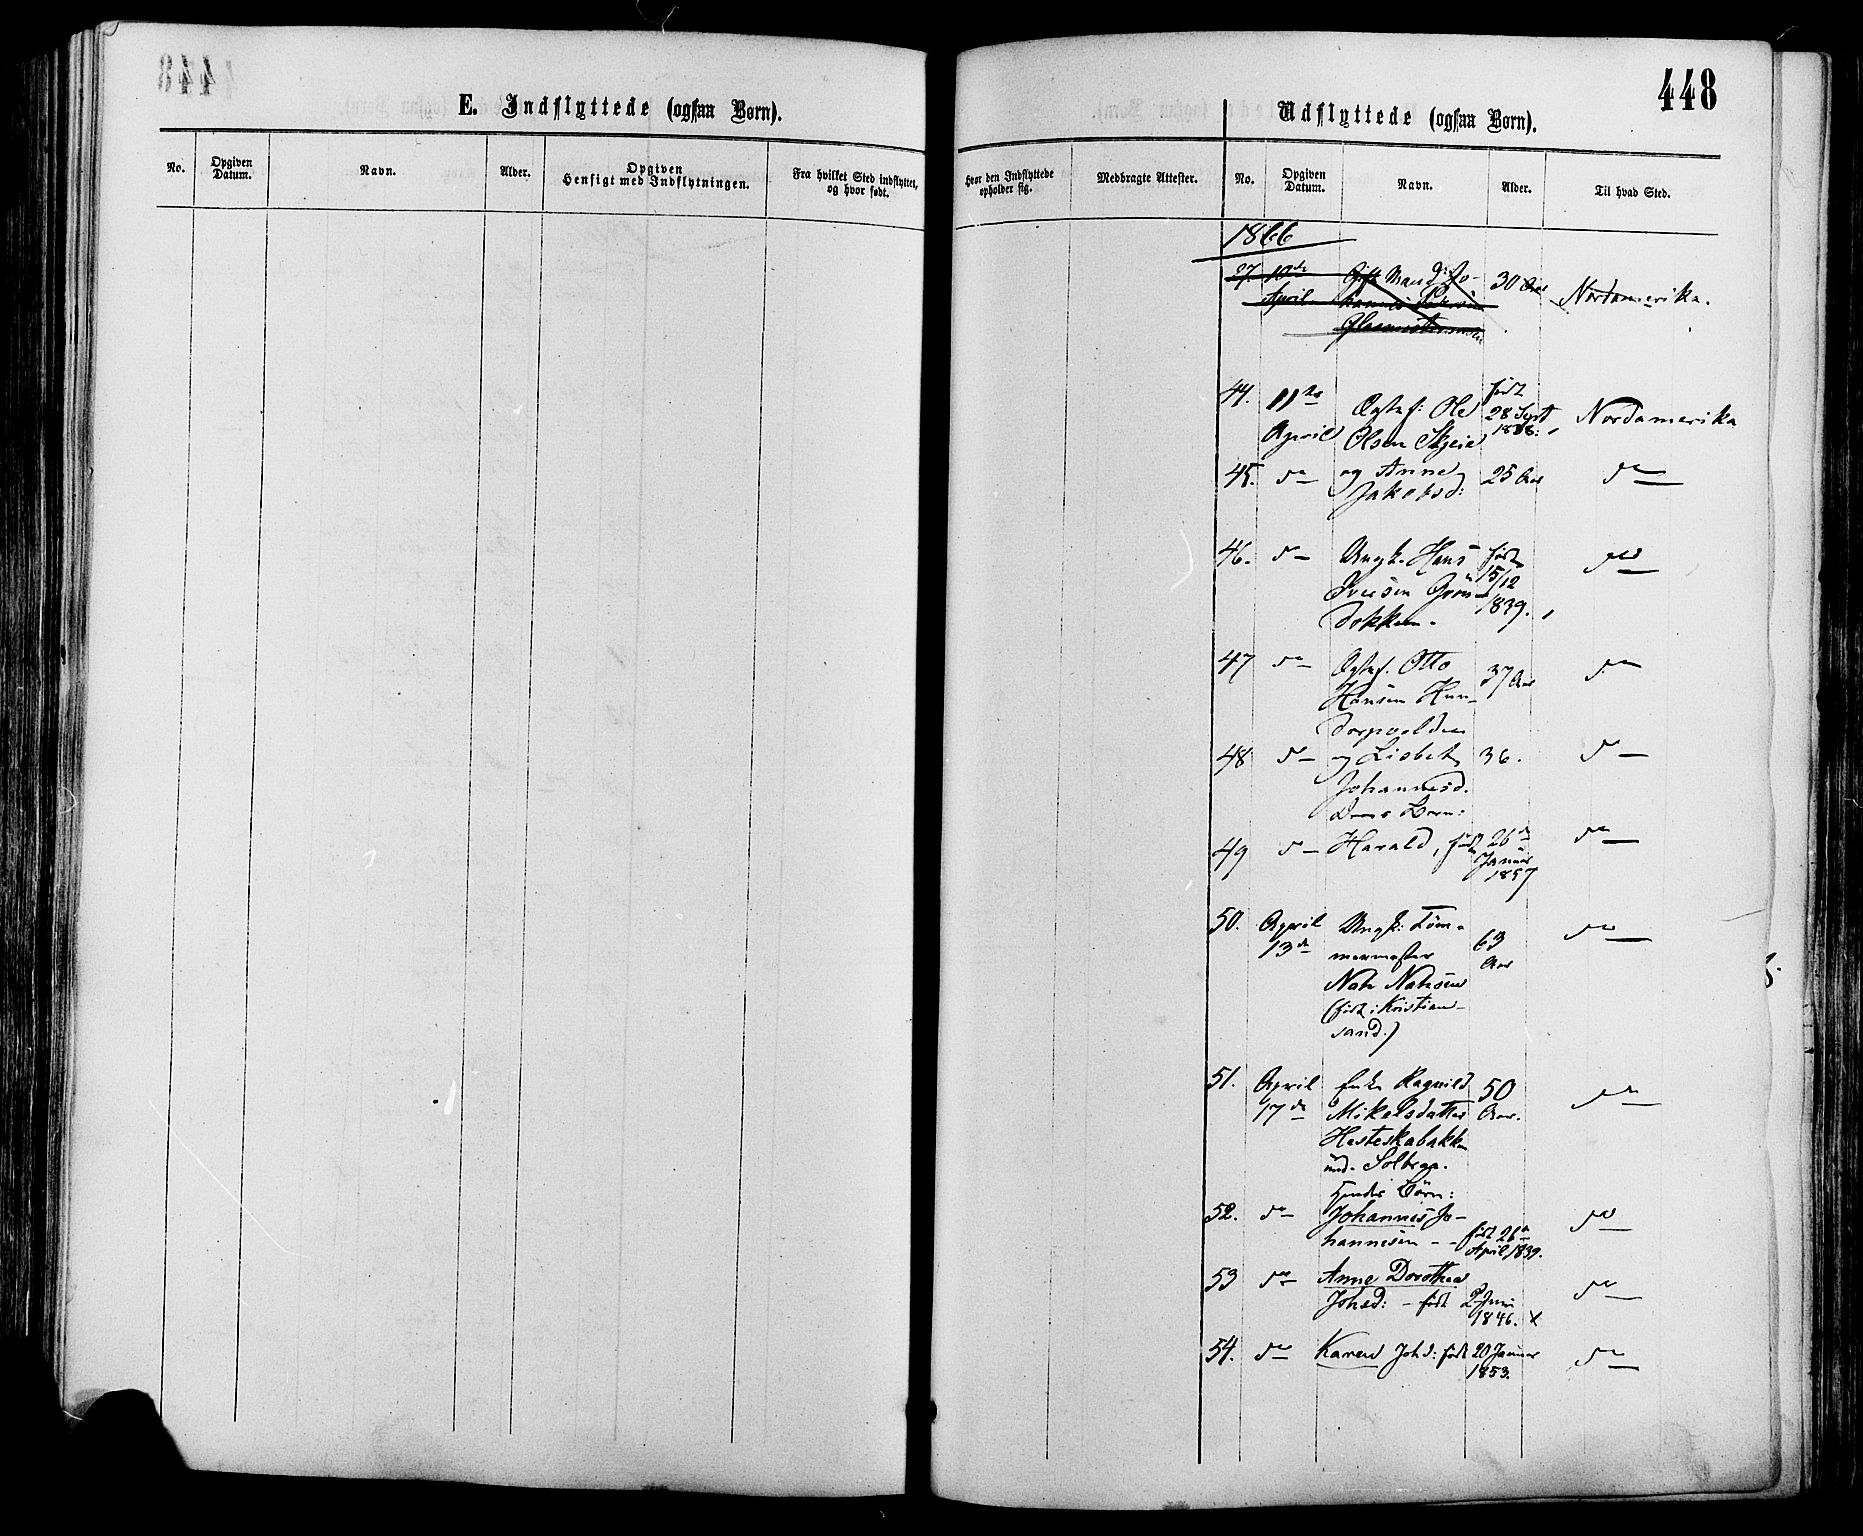 448
E. Indflyttede (ogsaa Børn).
No.
Opgiven
Datum.
Navn.
Alder.
Opgiven
Hensigt med Indflytningen.
Fra hvilket Sted indflyttet,
og hvor født.
Hvor den Indflyttede
opholder sig.
Medbragte Attester.
448
Udflyttede (ogsaa Børn).
No.
Opgiven
Datum.
Navn.
Alder.
Til hvad Sted.
1866
27. 10de Gift Mand Jo- 30 Aar Nordamerika.
April
44. 11te født
Ole 28 Sept Nordamerika
April Olsen Skjeie 1838.
45. do og Anne 25 Aar do
Jakobsd:
46. do Ungk. Hans født do
Iversen Grøn- 15/12
dokken. 1839.
47 do Otto 37 Aar do
Hansen Hun-
dorpvolden
48 do og Lisbet 36. do
Johannesd.
Deres Børn:
49 do Harald, født 26de do
Januar
1857
50. April Ungk: Tøm- 63 do
13de mermester Aar
Nah Nahsen
(født i Kristian-
sand.)
51. April Enke Ragnild 50 do
17de Mikelsdatter Aar.
Hesteskabakken
und. Solbraa.
Hendes Børn:
52. do Johannes Jo- do
hannesen - - født 26de
April 1839.
53 do Anne Dorothea do
Johsd: - født 2 Juni
1846. x
54. do Karen Johd: født 20 Januar do
1853.